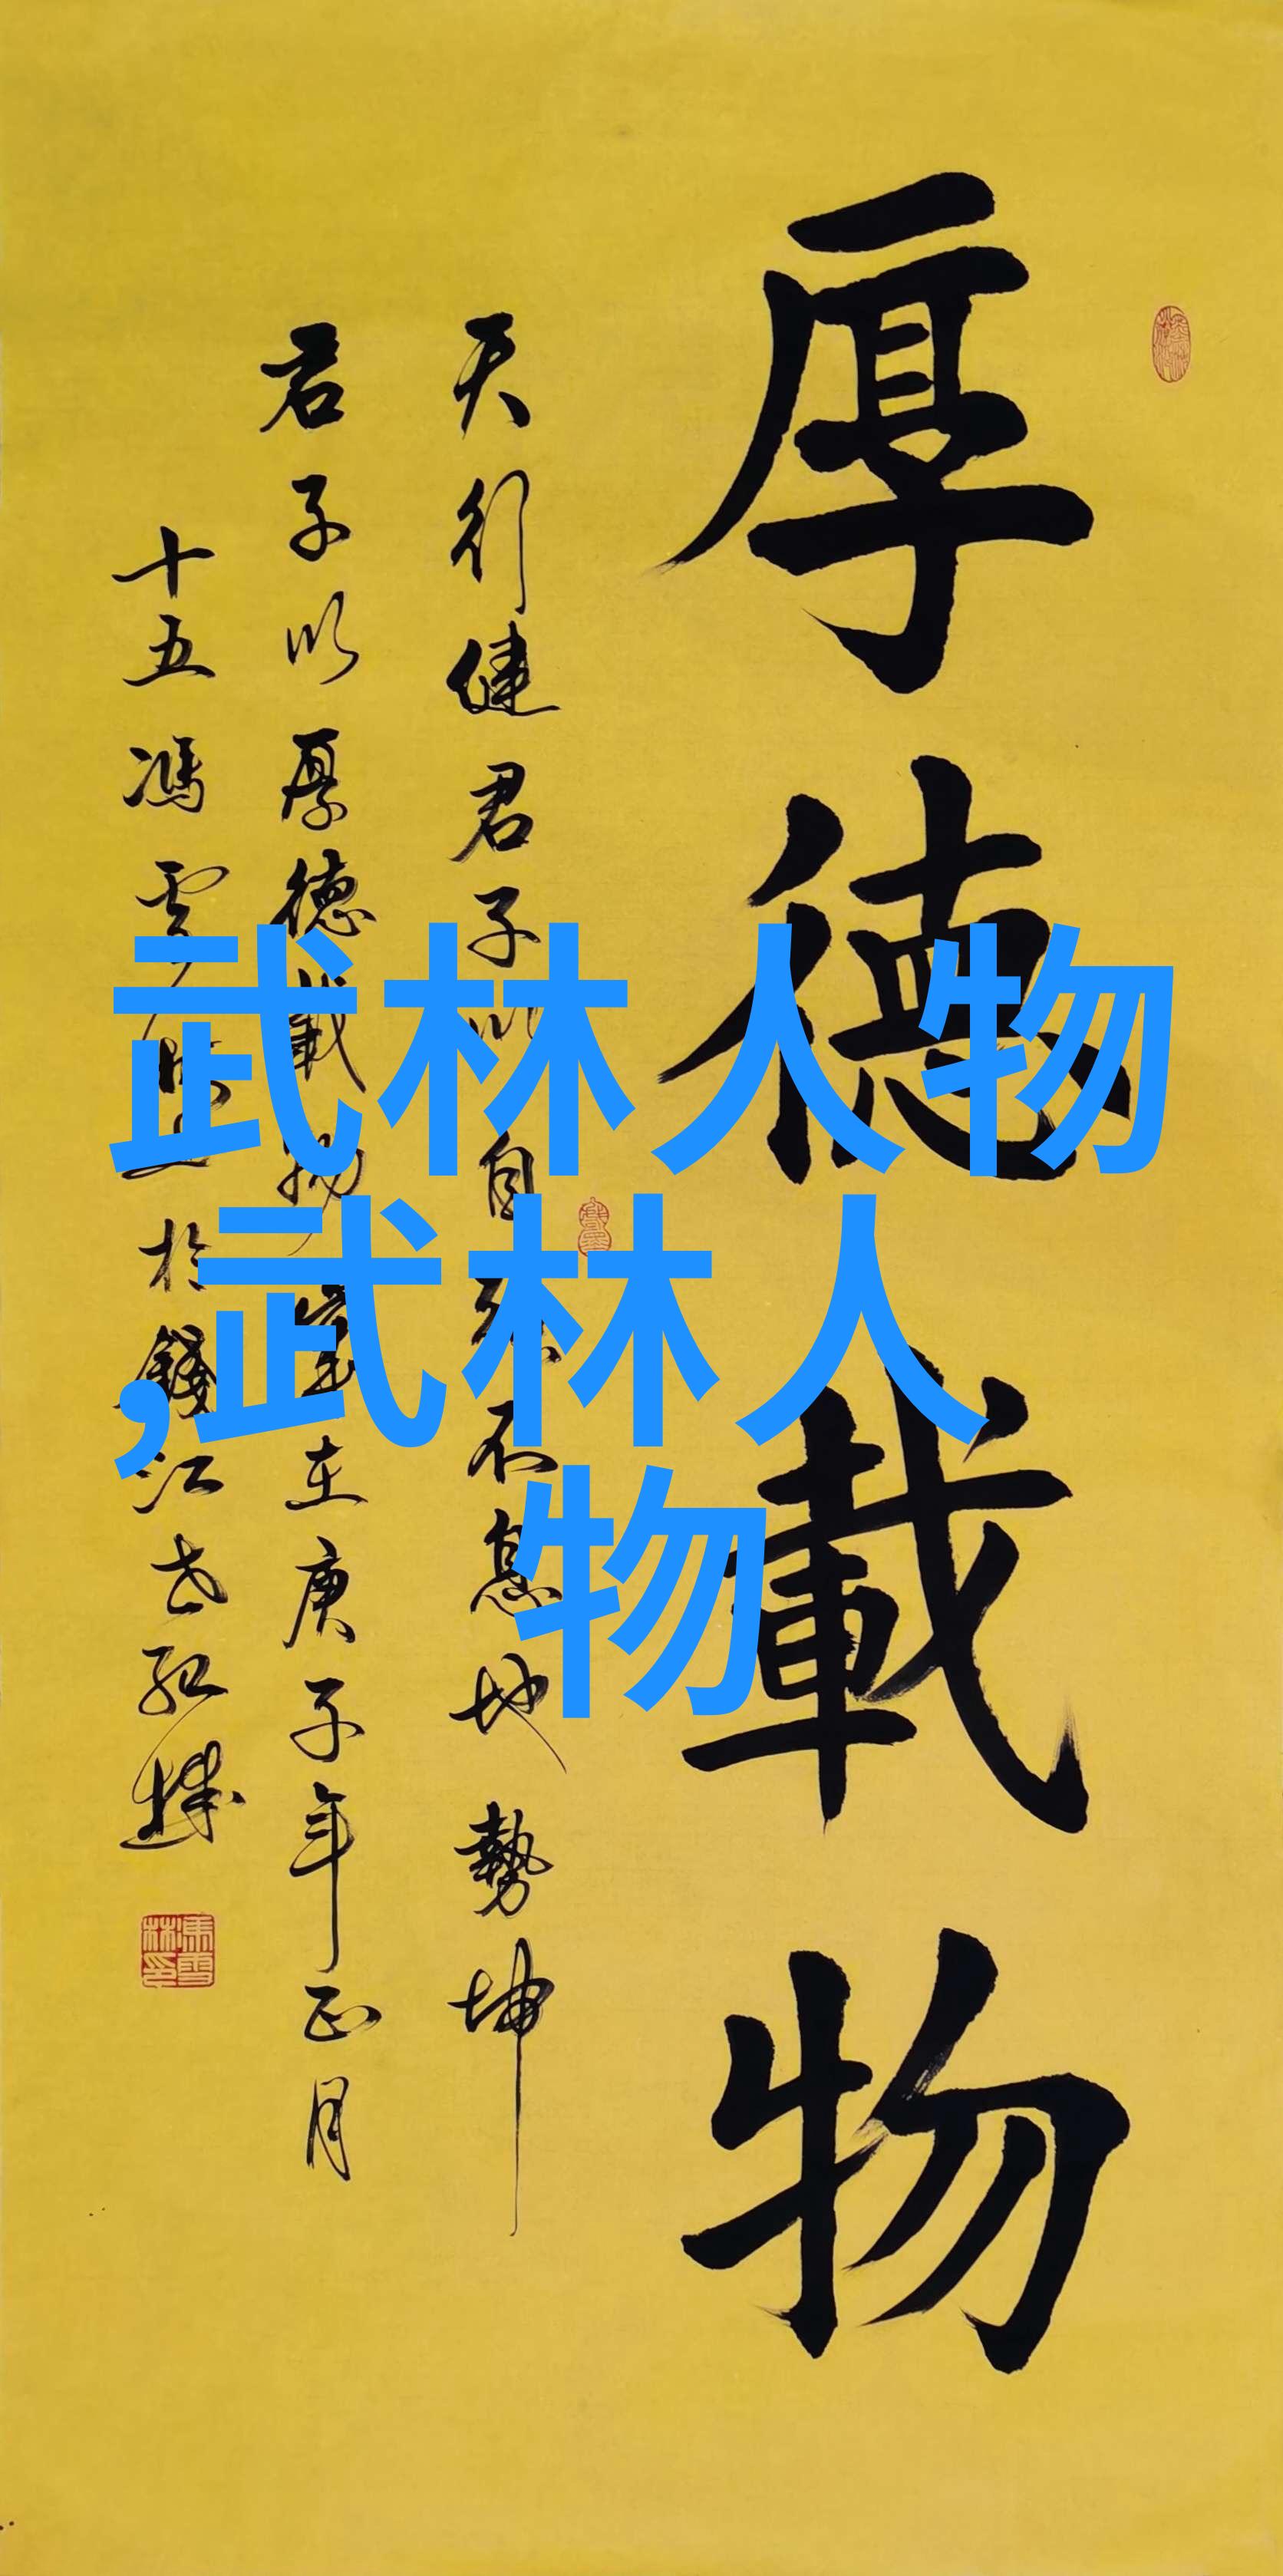 厚德載物
天行健君子以自强不息地勢坤
君子以厚德載物 在庚子年正月
十五馮雲 於錢江
武林人物
,武林人
物